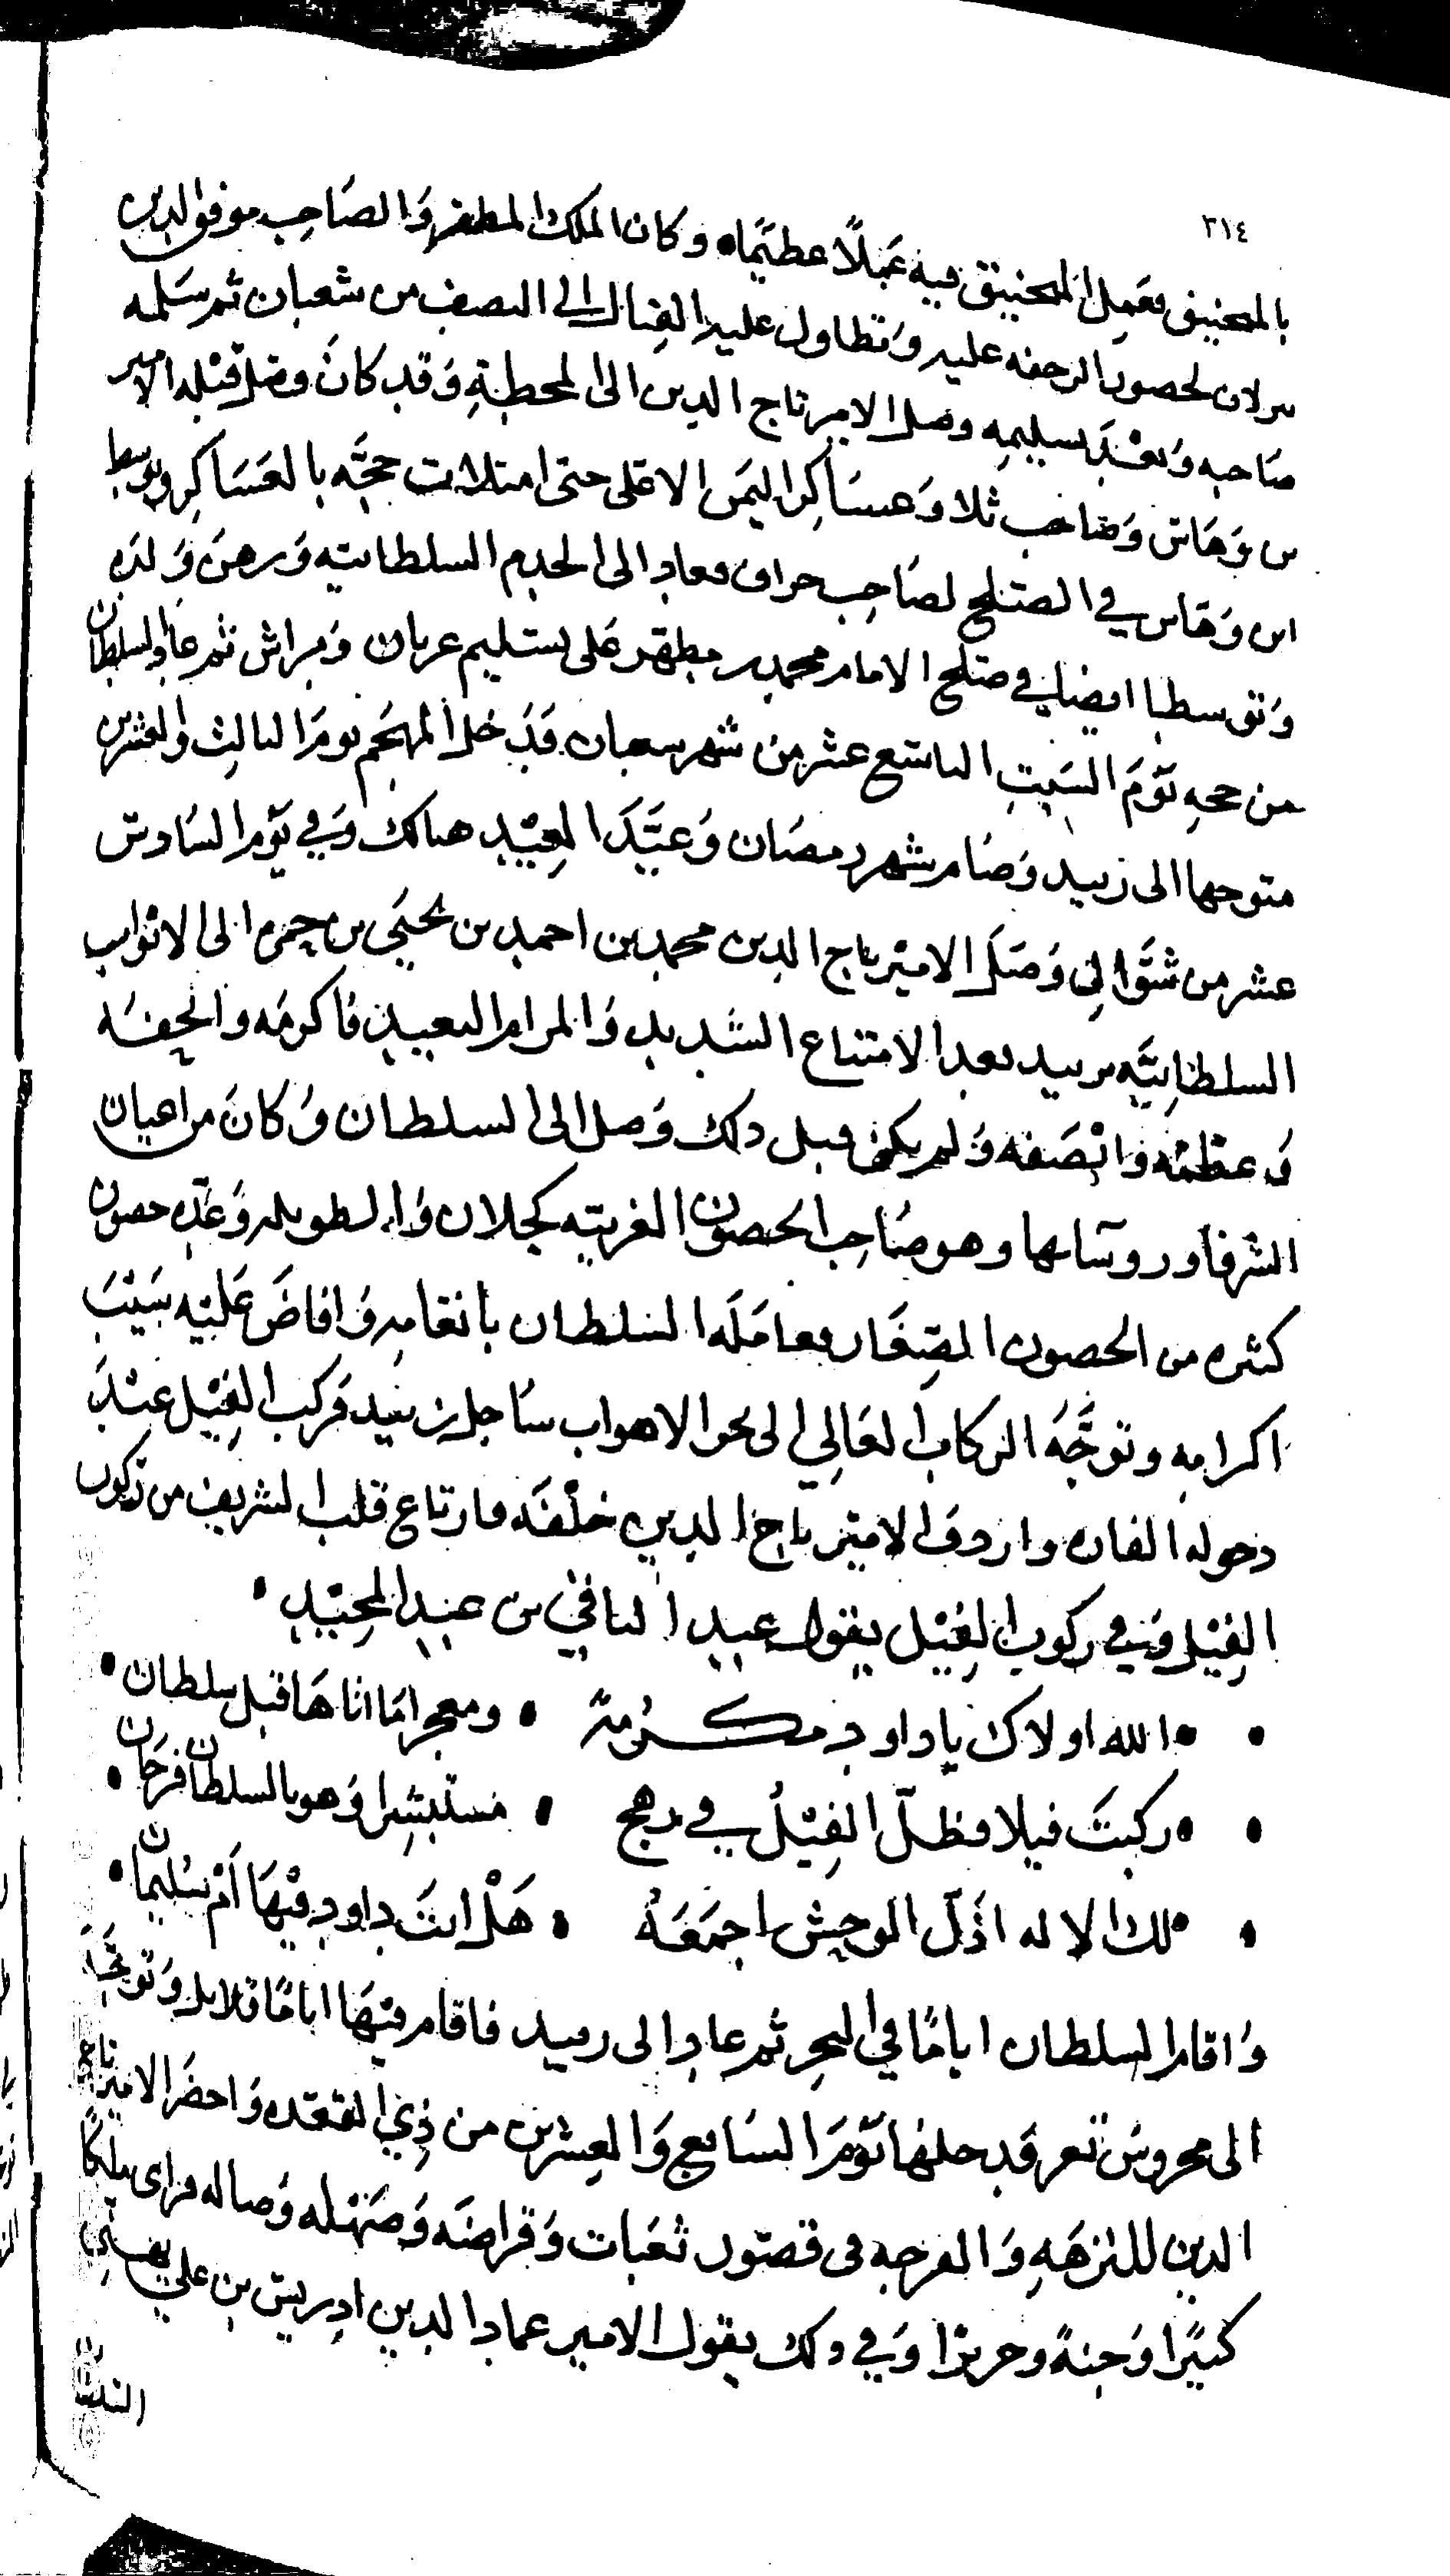 ٣١٤
بالمنجنيق فعمل المنجنيق فيه عملًا عظيمًا • وكان الملك المظفر والصاحب موفق الدين
لحصون الرحفه عليه وتطاول عليه القتال الى النصف من شعبان ثم سلمه
صاحبه وبعد تسليمه وصل الامير تاج الدين الى المحطة وقد كان وصل قبله الامير
بن وهاس وصاحب ثلا وعساكر اليمن الاعلى حتى امتلات حجه بالعساكر وتوسط
ابن وهاس في الصلح لصاحب حراف فعاد الى الخدم السلطانيه ورهن ولده
وتوسطا ايضا في صلح الامام محمد بن مطهر على تسليم عربان ومراش ثم عاد السلطان
من حجه يوم السبت التاسع عشر من شهر شعبان فدخل المهجم يوم الثالث والعشرين
متوجها الى زبيد وصام شهر رمضان وعيد العيد هنالك وفي يوم السادس
عشر من شوال وصل الامير تاج الدين محمد بن احمد بن يحيى بن حمزه الى الابواب
السلطانيه بزبيد بعد الامتناع الشديد والمرام البعيد فاكرمه واتحفه
وعظمه وانصفه ولم يكن قبل ذلك وصل الى السلطان وكان من اعيان
الشرفا وروسائها وهو صاحب الحصون الغربيه كحلان والطويله وعده حصون
كثيره من الحصون الصغار فعامله السلطان بانعامه وافاض عليه سيب
اكرامه وتوجه الركاب العالي الى بحر الاهواب ساحل زبيد فركب الفيل عند
دخوله القاره واردف الامير تاج الدين خلفه فارتاع قلب الشريف من ركوب
الفيل وفي ركوب الفيل يقول عبد الباقي بن عبد المجيد •
• • الله اولاك ياداود مكرمة • ومعجزا ما اتاها قبل سلطان •
• • ركبت فيلا فظل الفيل في رهج • مستبشرا وهو بالسلطان فرحان •
• • لك الاله اذل الوحش اجمعه • هل انت داود فيها ام سليمان •
واقام السلطان اياما في البحر ثم عاد الى زبيد فاقام فيها اياما قلايل وتوجه
الى محروس تعز فدخلها يوم السابع والعشرين من ذي القعده واحضر الامير تاج
الدين للنزهه والفرجه في قصور ثعبات وقراضه وصهله وصاله فراى ملكا
كبيرا وجنة وحريرا وفي ذلك يقول الامير عماد الدين ادريس بن علي